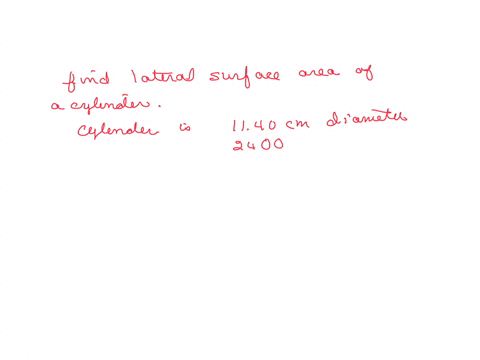 find lateral surface area of
a cylinder.
cylinder is 11.40 cm diameter
2400